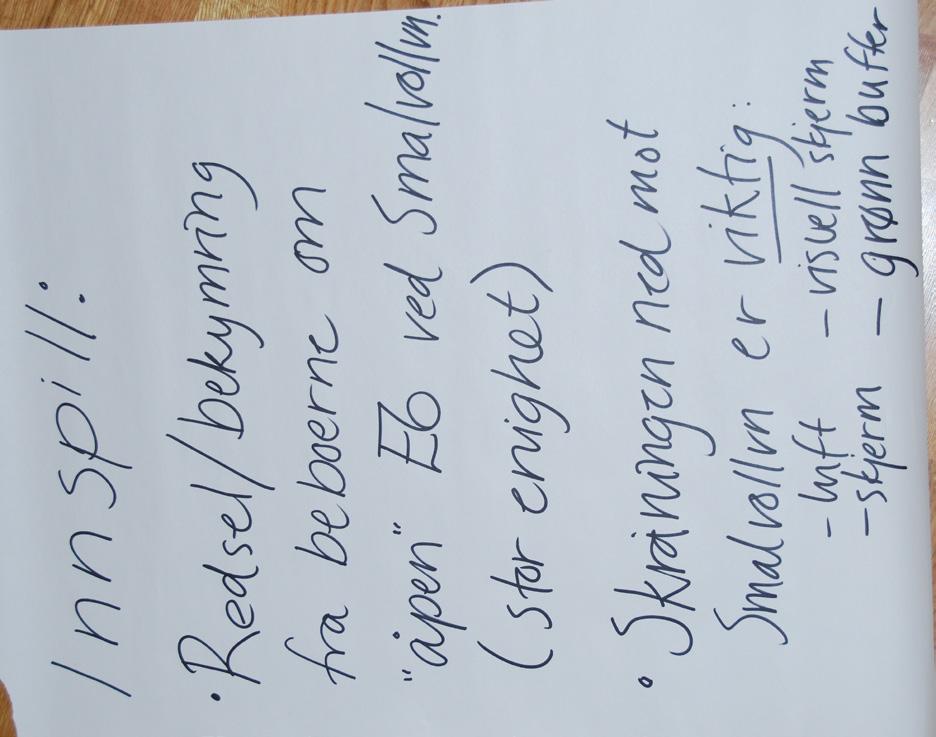 Innspill:
• Redsel/bekymring
fra beboerne om
"åpen" E6 ved Smalvollvn.
(stor enighet)
• Skråningen ned mot
Smalvollvn er viktig:
- luft - visuell skjerm
- skjerm - grønn buffer